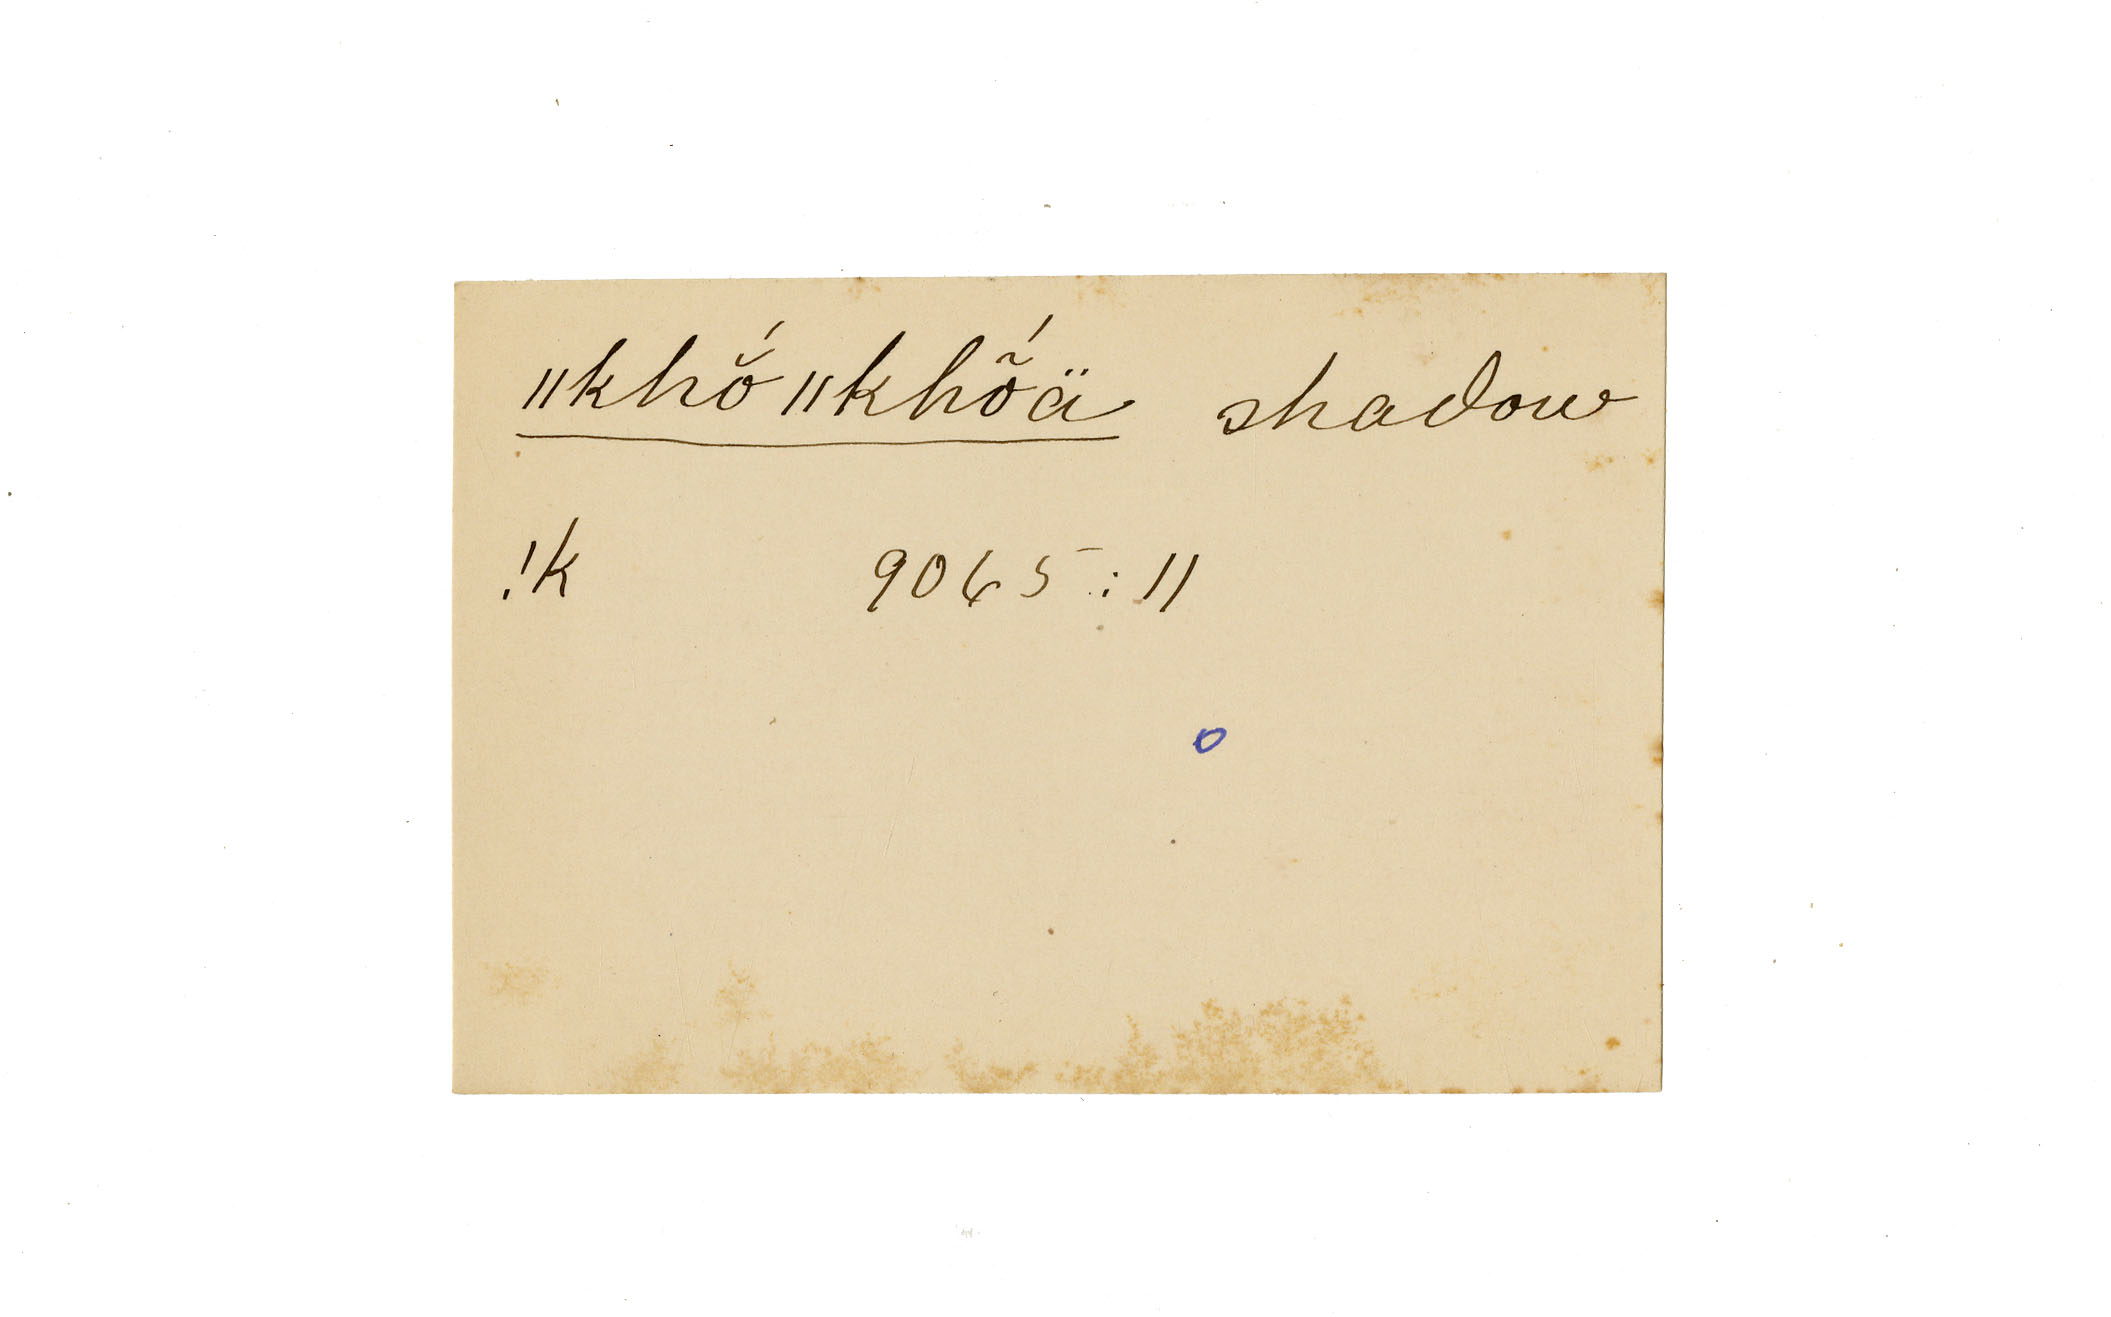 ǁkhŏ́ǁkhṍä shadow
!k 9065 : 11
o